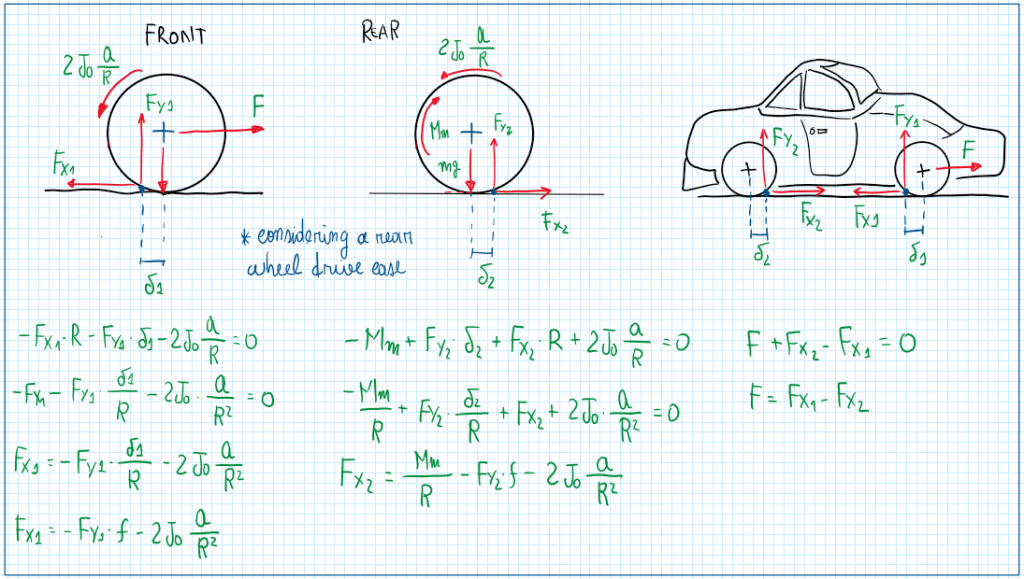 FRONT
2J₀ a/R
F_Y1
F
F_X1
δ1
REAR
2J₀ a/R
Mm
F_Y2
mg
F_X2
δ2
* considering a rear
wheel drive case
F_Y2
F_Y1
F
F_X2
F_X1
δ2
δ1
-F_X1·R - F_Y1·δ1 - 2J₀ a/R = 0
-F_X1 - F_Y1·δ1/R - 2J₀·a/R² = 0
F_X1 = -F_Y1·δ1/R - 2J₀ a/R²
F_X1 = -F_Y1·f - 2J₀ a/R²
-Mm + F_Y2·δ2 + F_X2·R + 2J₀ a/R = 0
-Mm/R + F_Y2·δ2/R + F_X2 + 2J₀·a/R² = 0
F_X2 = Mm/R - F_Y2·f - 2J₀ a/R²
F + F_X2 - F_X1 = 0
F = F_X1 - F_X2